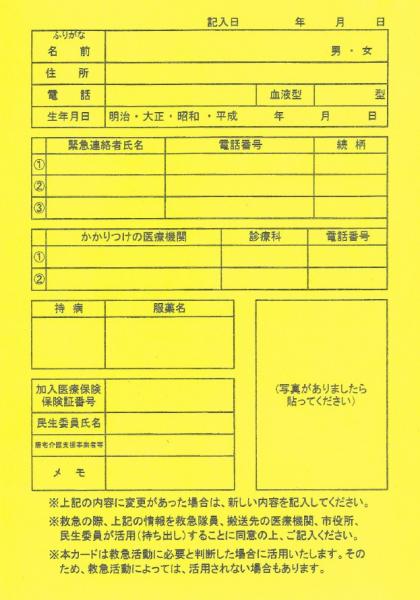 記入日 年 月 日
ふりがな
名前 男・女
住所
電話 血液型 型
生年月日 明治・大正・昭和・平成 年 月 日
緊急連絡者氏名 電話番号 続柄
①
②
③
かかりつけの医療機関 診療科 電話番号
①
②
持病 服薬名
(写真がありましたら
貼ってください)
加入医療保険
保険証番号
民生委員氏名
居宅介護支援事業者等
メモ
※上記の内容に変更があった場合は、新しい内容を記入してください。
※救急の際、上記の情報を救急隊員、搬送先の医療機関、市役所、
民生委員が活用(持ち出し)することに同意の上、ご記入ください。
※本カードは救急活動に必要と判断した場合に活用いたします。その
ため、救急活動によっては、活用されない場合もあります。